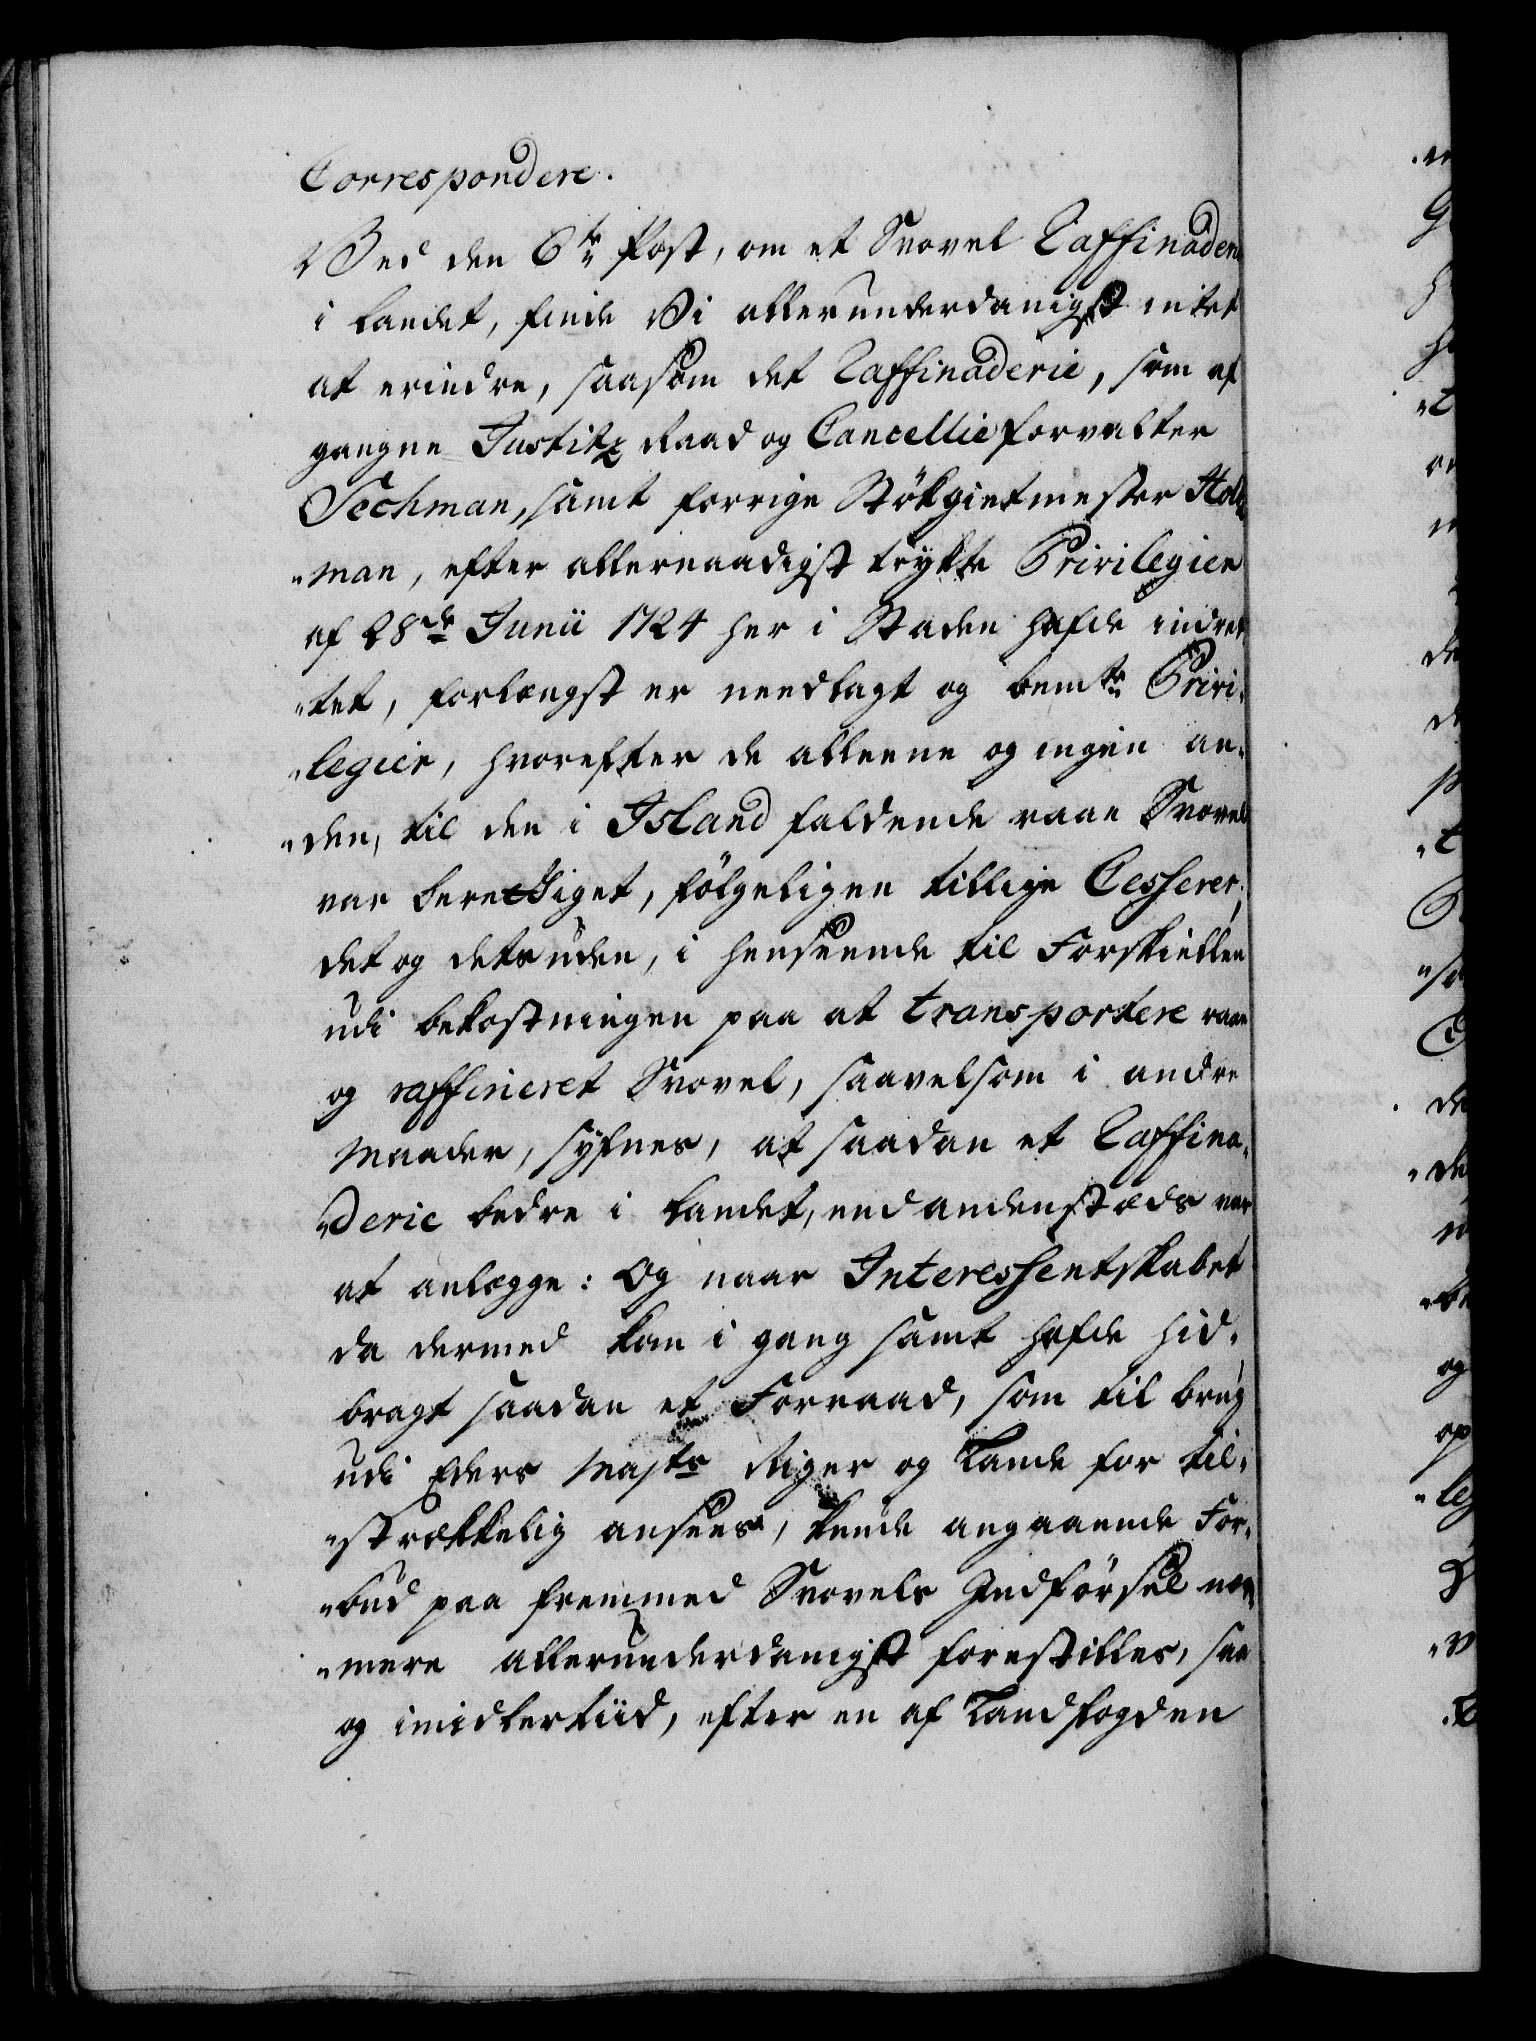 Correspondere.
Ved den 6te Post, om et Svovel Raffinaderie
i landet, finde Vi allerunderdanigst intet
at erindre, saasom det Raffinaderie, som af
gangne Justitz Raad og Cancellieforvalter
Sechman, samt forrige Stökgietmester Holt
"man, efter allernaadigst trykte Privilegier
af 28de Junii 1724 her i Staden hafde indret
"tet, forlængst er needlagt og bemte Privi„
"legier, hvorefter de alleene og ingen an„
"den, til den i Island faldende raae Svovel
var berettiget, fölgeligen tillige Cesserer,
det og desuden, i henseende til Forskiellen
udi bekostningen paa at transportere raae
og raffineret Svovel, saavelsom i andre
Maader, syfnes, at saadan et Raffina„
"derie bedre i landet, end andenstæds var
at anlægge: Og naar Interessentskabet
da dermed kom i gang samt hafde hid„
bragt saadan et Forraad, som til brug
udi Eders Majts Riger og Lande for til„
"strækkelig ansees, kunde angaaende For„
"bud paa fremmed Svovels Indførsel nær
"mere allerunderdanigst forestilles, saa
og imidlertiid, efter en af Landfogden